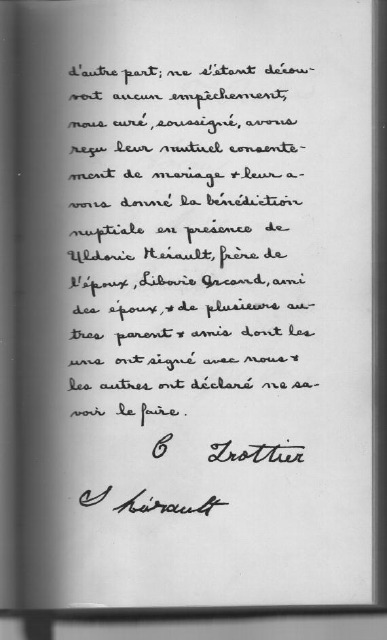 d'autre part; ne s'étant décou-
vert aucun empêchement,
nous curé, soussigné, avons
reçu leur mutuel consente-
ment de mariage & leur a-
vons donné la bénédiction
nuptiale en présence de
Uldoric Hérault, frère de
l'époux, Liborie Arcand, ami
des époux, & de plusieurs au-
tres parent & amis dont les
uns ont signé avec nous &
les autres ont déclaré ne sa-
voir le faire.
C Trottier
S hérault